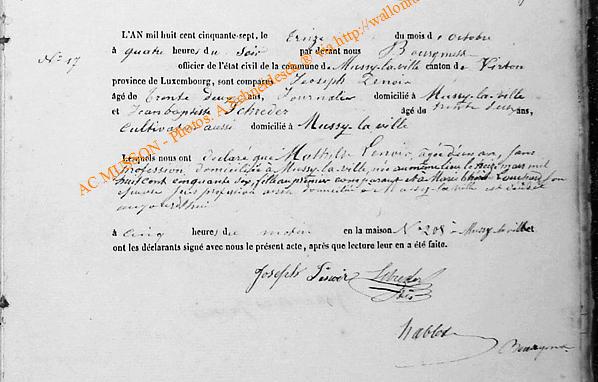 L'AN mil huit cent cinquante-sept, le treize du mois d'octobre
N° 17 à quatre heures du soir par devant nous Bourgmestre
officier de l'état civil de la commune de Mussy-la-ville canton de Virton
province de Luxembourg, sont comparus Joseph Lenoir
âgé de trente deux ans, Journalier domicilié à Mussy-la-ville
et Jean baptiste Schreder âgé de trente ans,
Cultivateur aussi domicilié à Mussy-la-ville
Lesquels nous ont déclaré que Mathilde Lenoir, âgée d'un an, sans
profession, domiciliée à Mussy-la-ville, née au même lieu le mars mil
huit cent cinquante six, fille au premier comparant et à Marie
épouse, sans profession aussi domiciliée à Mussy-la-ville est décédée
aujourd'hui
à cinq heures du matin en la maison N° 208 à Mussy-la-ville et
ont les déclarants signé avec nous le présent acte, après que lecture leur en a été faite.
Joseph Lenoir Schreder
Bourgmestre
AC MUSSON - Photos: A. Schneidesch © via http://wallonia